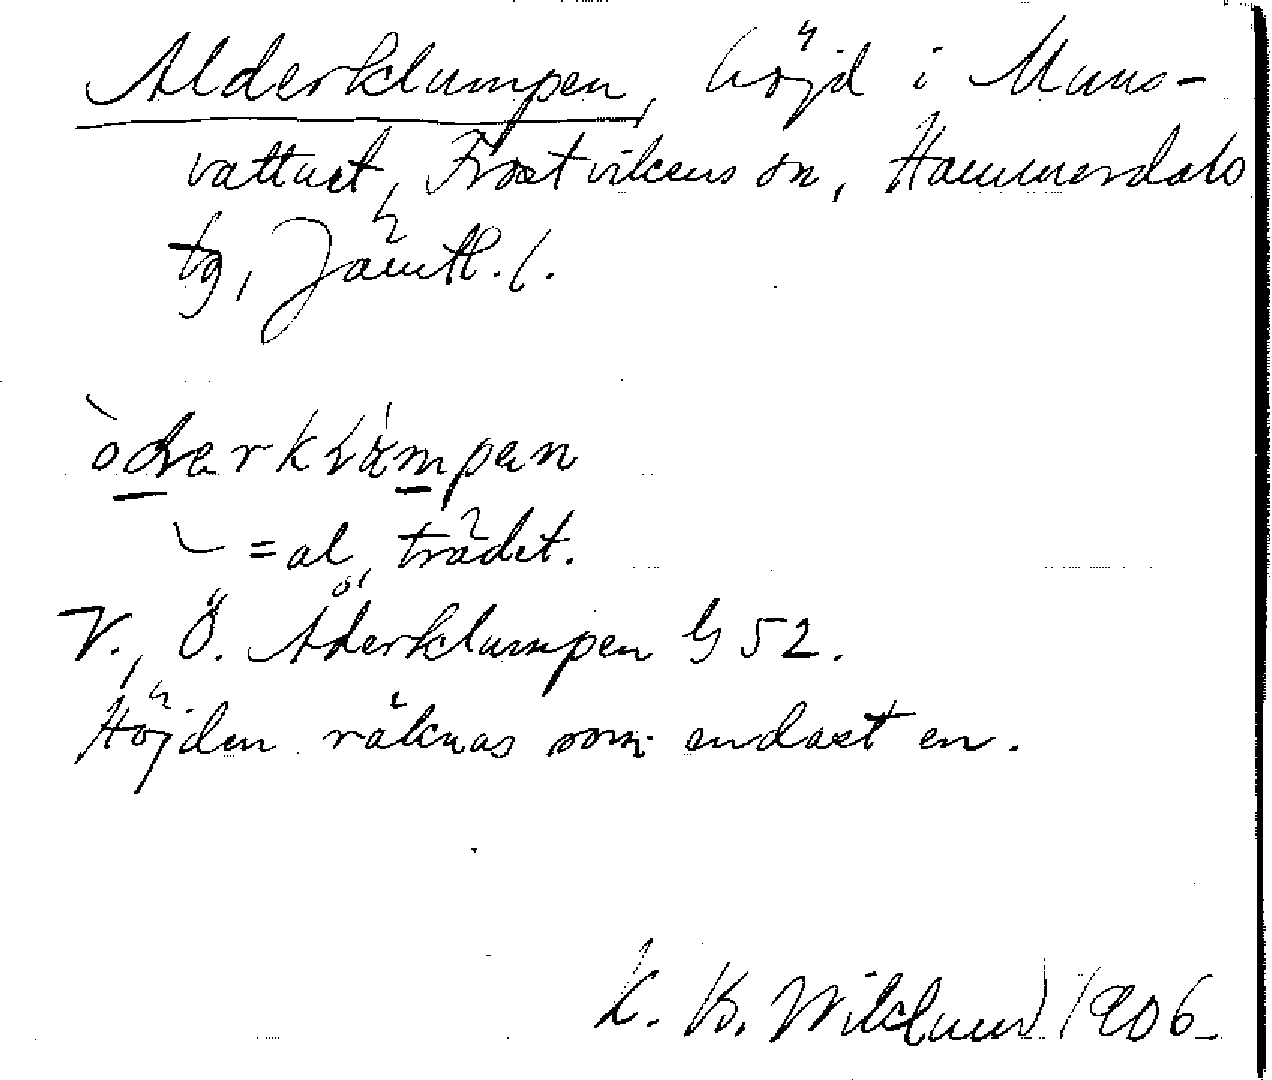 Alderklumpen, höjd i Muns-
vattnet, Frostvikens sn, Hammerdals
tg, Jämtl. l.
òderklòmpen
= al, trädet.
V., Ö. Åderklumpen G 52.
Höjden räknas som endast en.
K. B. Wiklund 1906